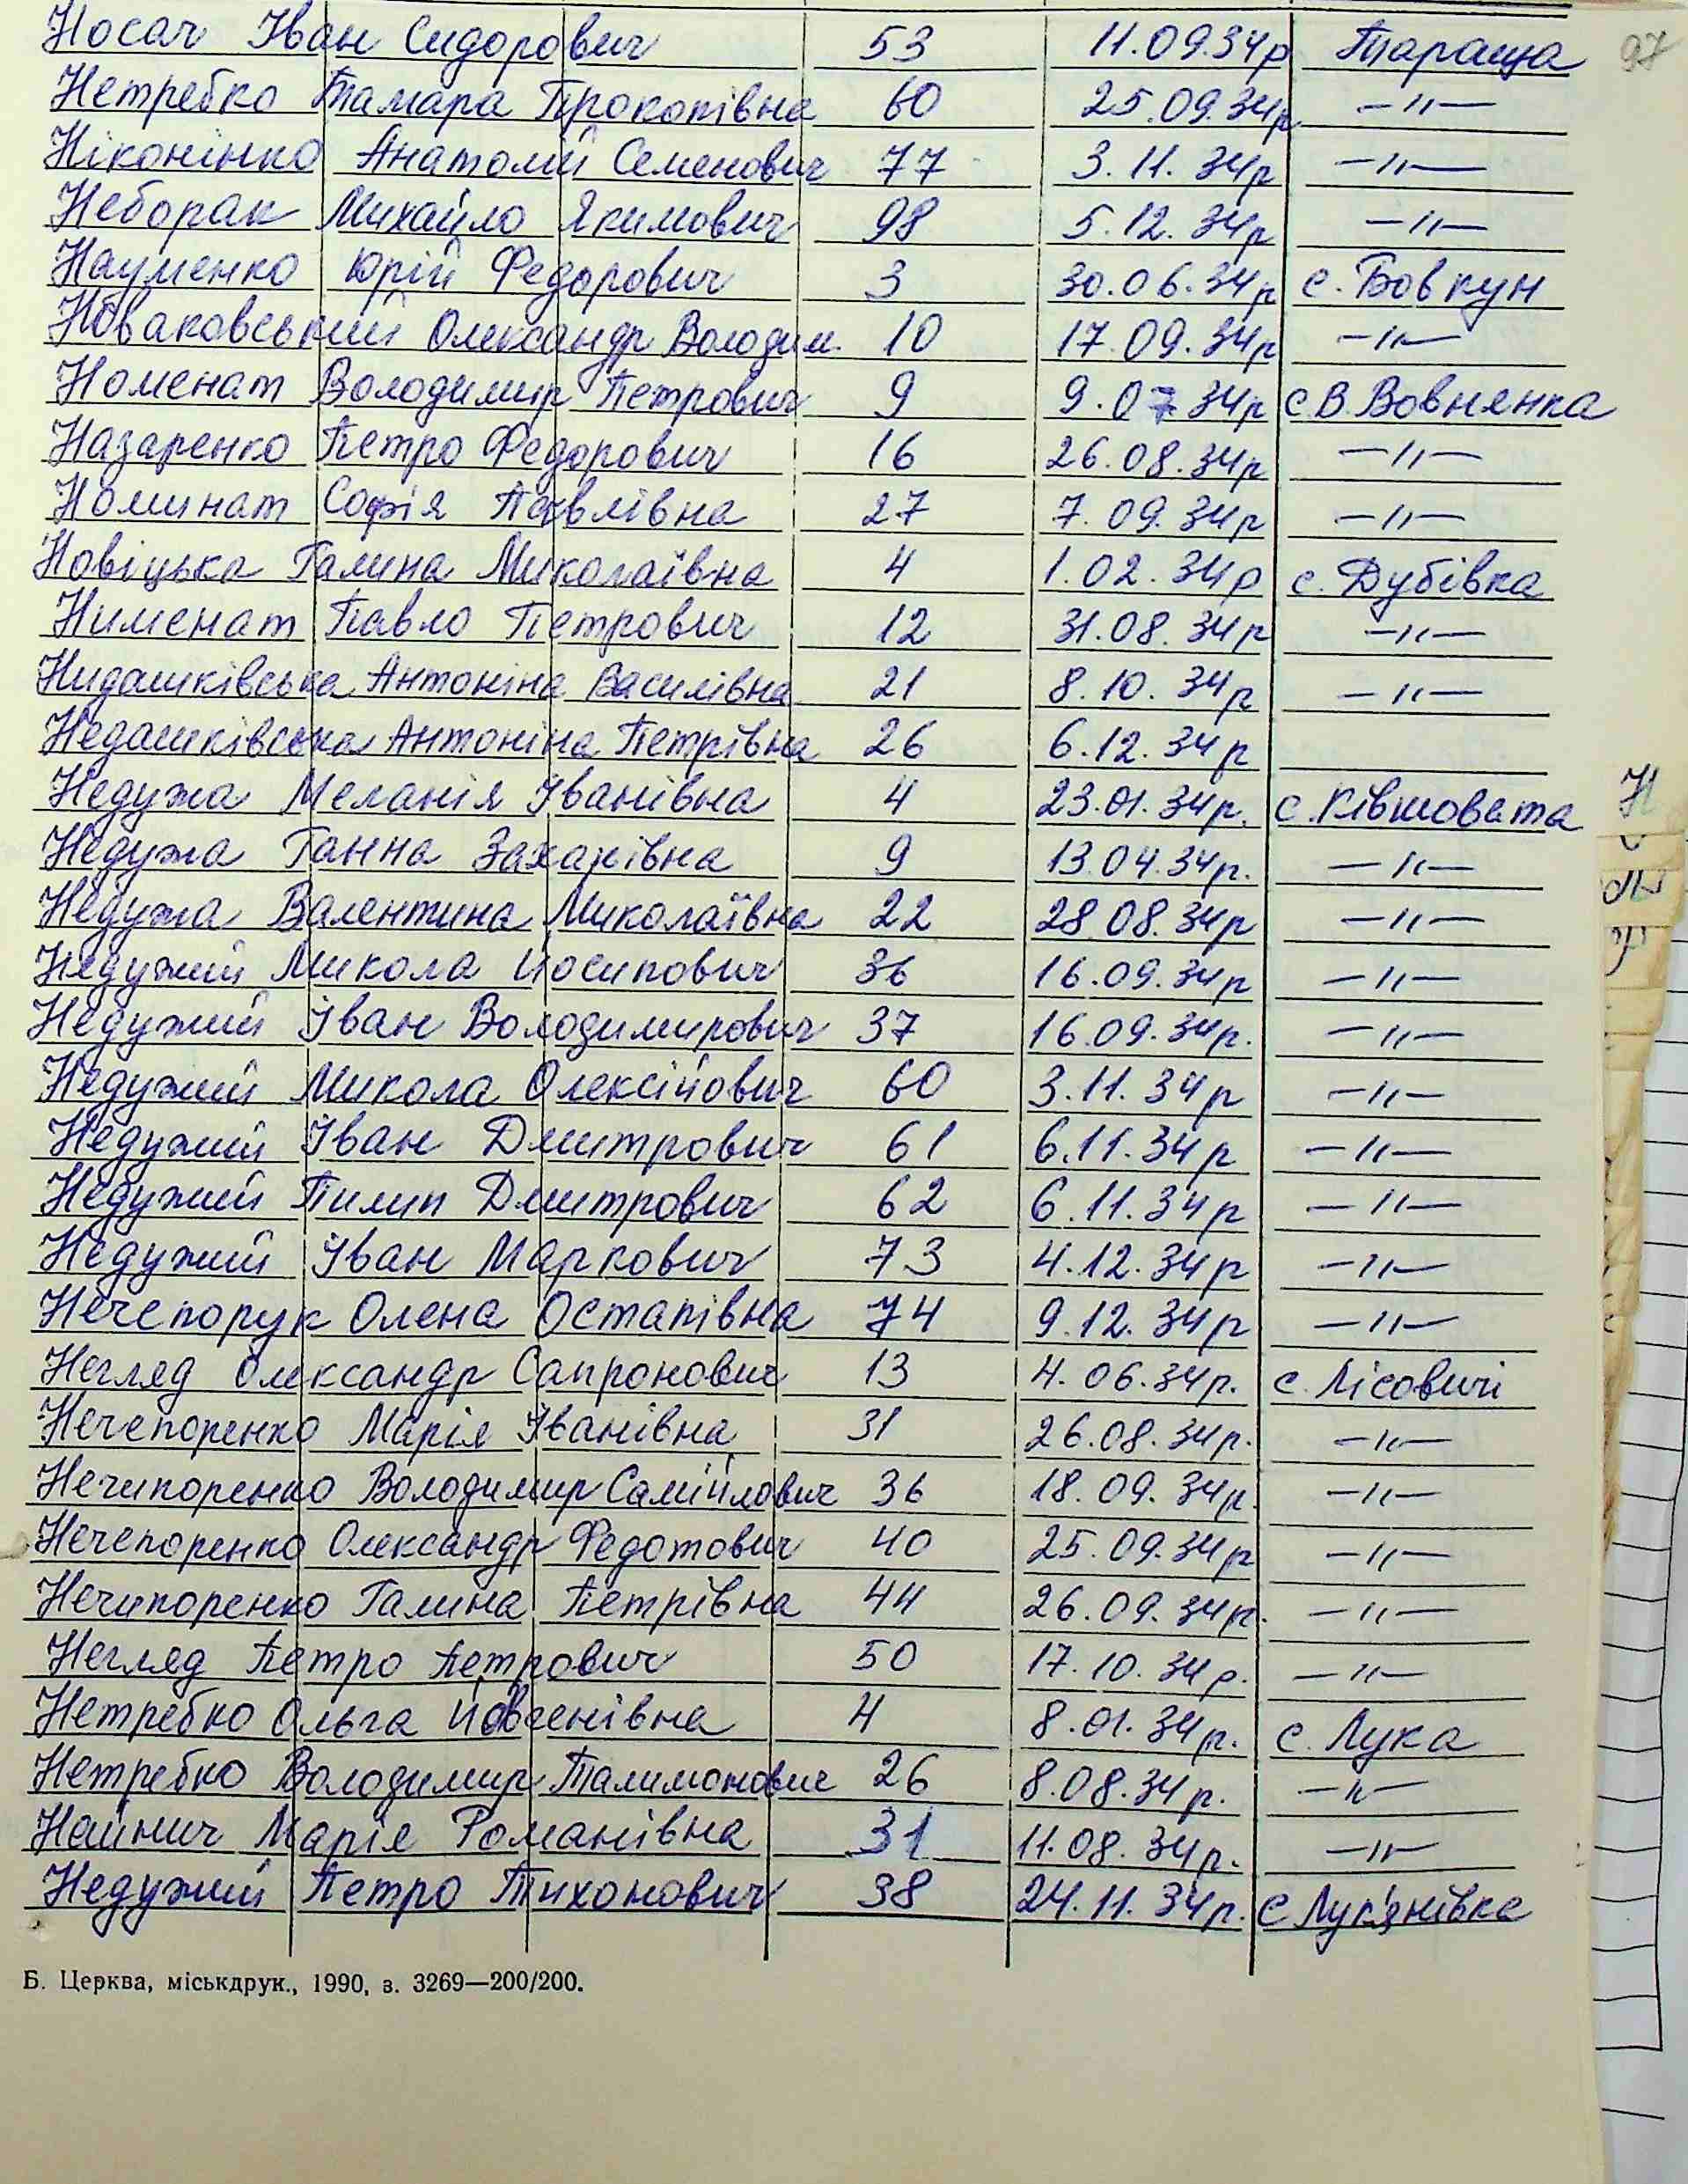 97
Носач Іван Сидорович 53 11.09.34р Тараща
Нетребко Тамара Прокопівна 60 25.09.34р —"—
Ніконінко Анатолій Семенович 77 3.11.34р —"—
Неборак Михайло Якимович 98 5.12.34р —"—
Науменко Юрій Федорович 3 30.06.34р с. Бовкун
Новаковський Олександр Володим. 10 17.09.34р —"—
Номенат Володимир Петрович 9 9.07 34р с В. Вовнянка
Назаренко Петро Федорович 16 26.08.34р —"—
Номинат Софія Павлівна 27 7.09.34р —"—
Новіцька Галина Миколаївна 4 1.02.34р с. Дубівка
Нименат Павло Петрович 12 31.08.34р —"—
Нидашківська Антоніна Василівна 21 8.10.34р —"—
Недашківська Антоніна Петрівна 26 6.12.34р
Недужа Меланія Іванівна 4 23.01.34р. с. Ківшовата
Недужа Ганна Захарівна 9 13.04.34р. —"—
Недужа Валентина Миколаївна 22 28.08.34р —"—
Недужий Микола Йосипович 36 16.09.34р —"—
Недужий Іван Володимирович 37 16.09.34р. —"—
Недужий Микола Олексійович 60 3.11.34р —"—
Недужий Іван Дмитрович 61 6.11.34р —"—
Недужий Пилип Дмитрович 62 6.11.34р —"—
Недужий Іван Маркович 73 4.12.34р —"—
Нечепорук Олена Остапівна 74 9.12.34р —"—
Негляд Олександр Сапронович 13 4.06.34р. с. Лісовичі
Нечепоренко Марія Іванівна 31 26.08.34р. —"—
Нечипоренко Володимир Самійлович 36 18.09.34р. —"—
Нечепоренко Олександр Федотович 40 25.09.34р —"—
Нечипоренко Галина Петрівна 44 26.09.34р. —"—
Негляд Петро Петрович 50 17.10.34р. —"—
Нетребко Ольга Йовгенівна 4 8.01.34р. с. Лука
Нетребко Володимир Талимонович 26 8.08.34р. —"—
Найнич Марія Романівна 31 11.08.34р. —"—
Недужий Петро Тихонович 38 24.11.34р. с Лук'янівка
Н
Б. Церква, міськдрук., 1990, з. 3269—200/200.